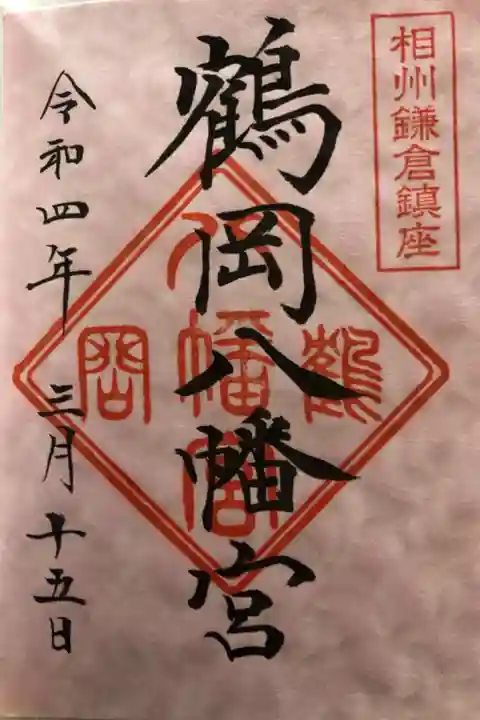 相州鎌倉鎮座
鶴岡八幡宮
鶴
岡
八幡宮
令和四年 三月十五日